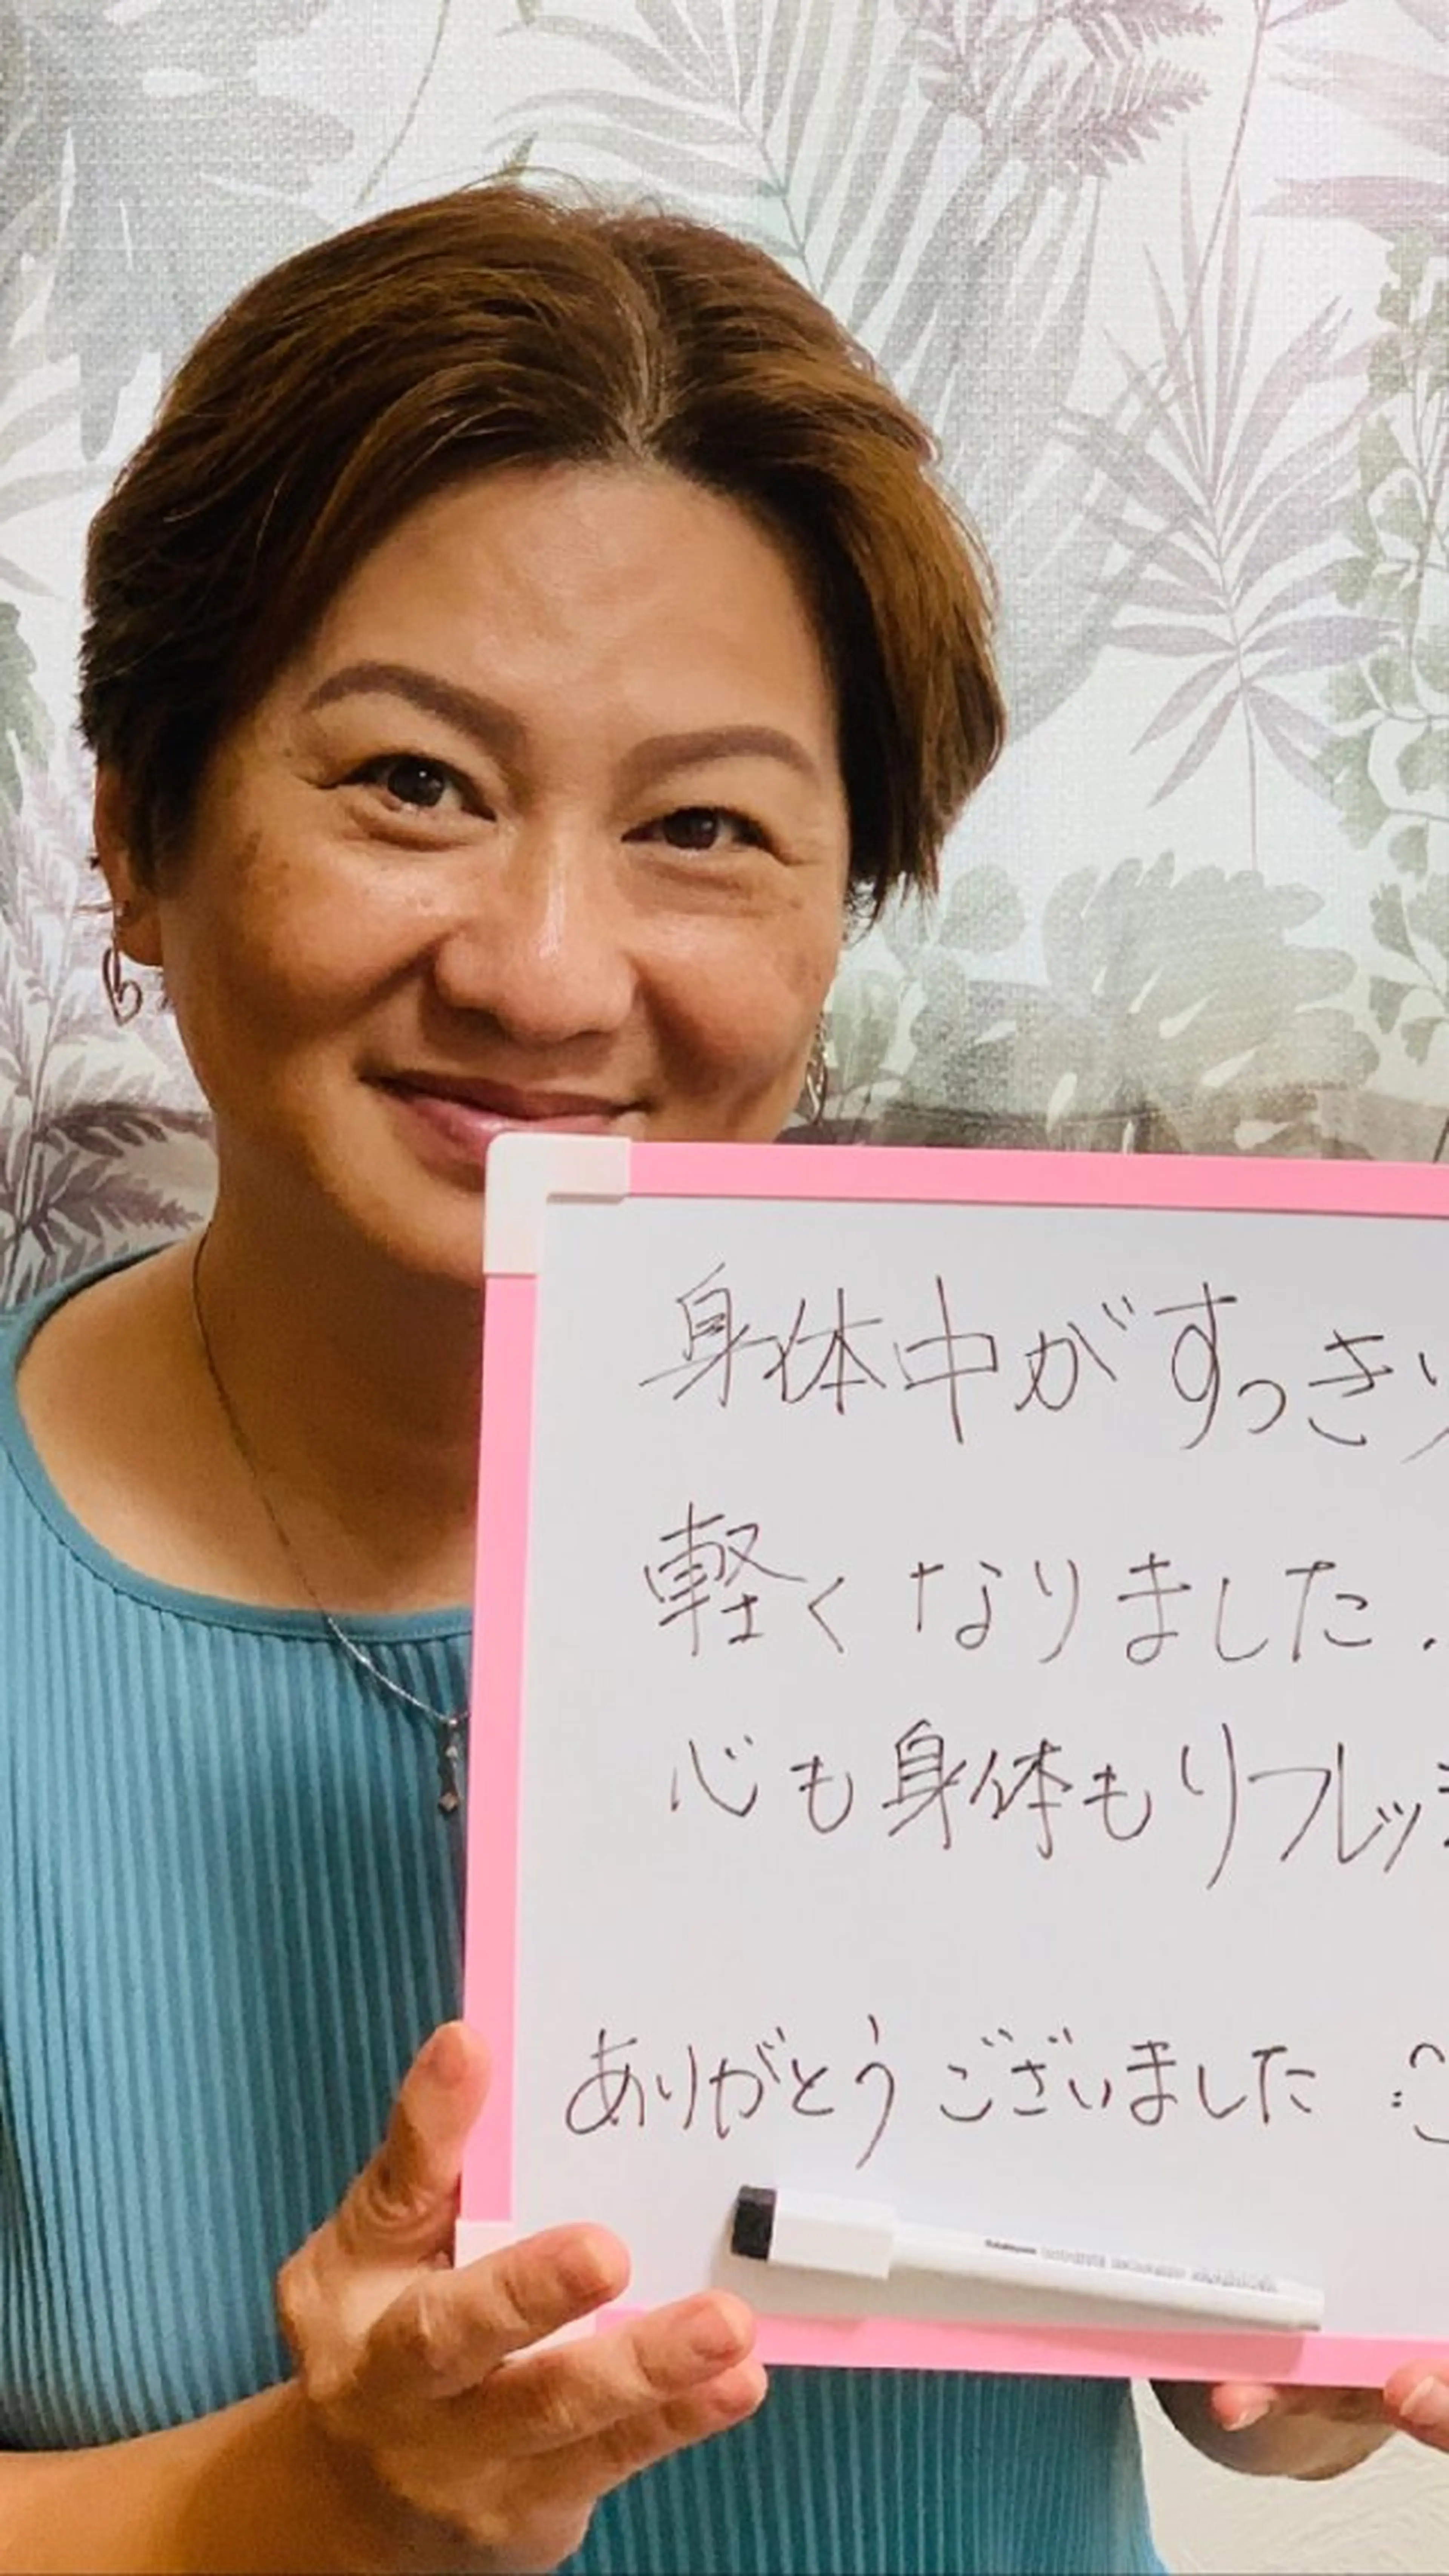 身体中がすっきり
軽くなりました.
心も身体もリフレッ
ありがとうございました